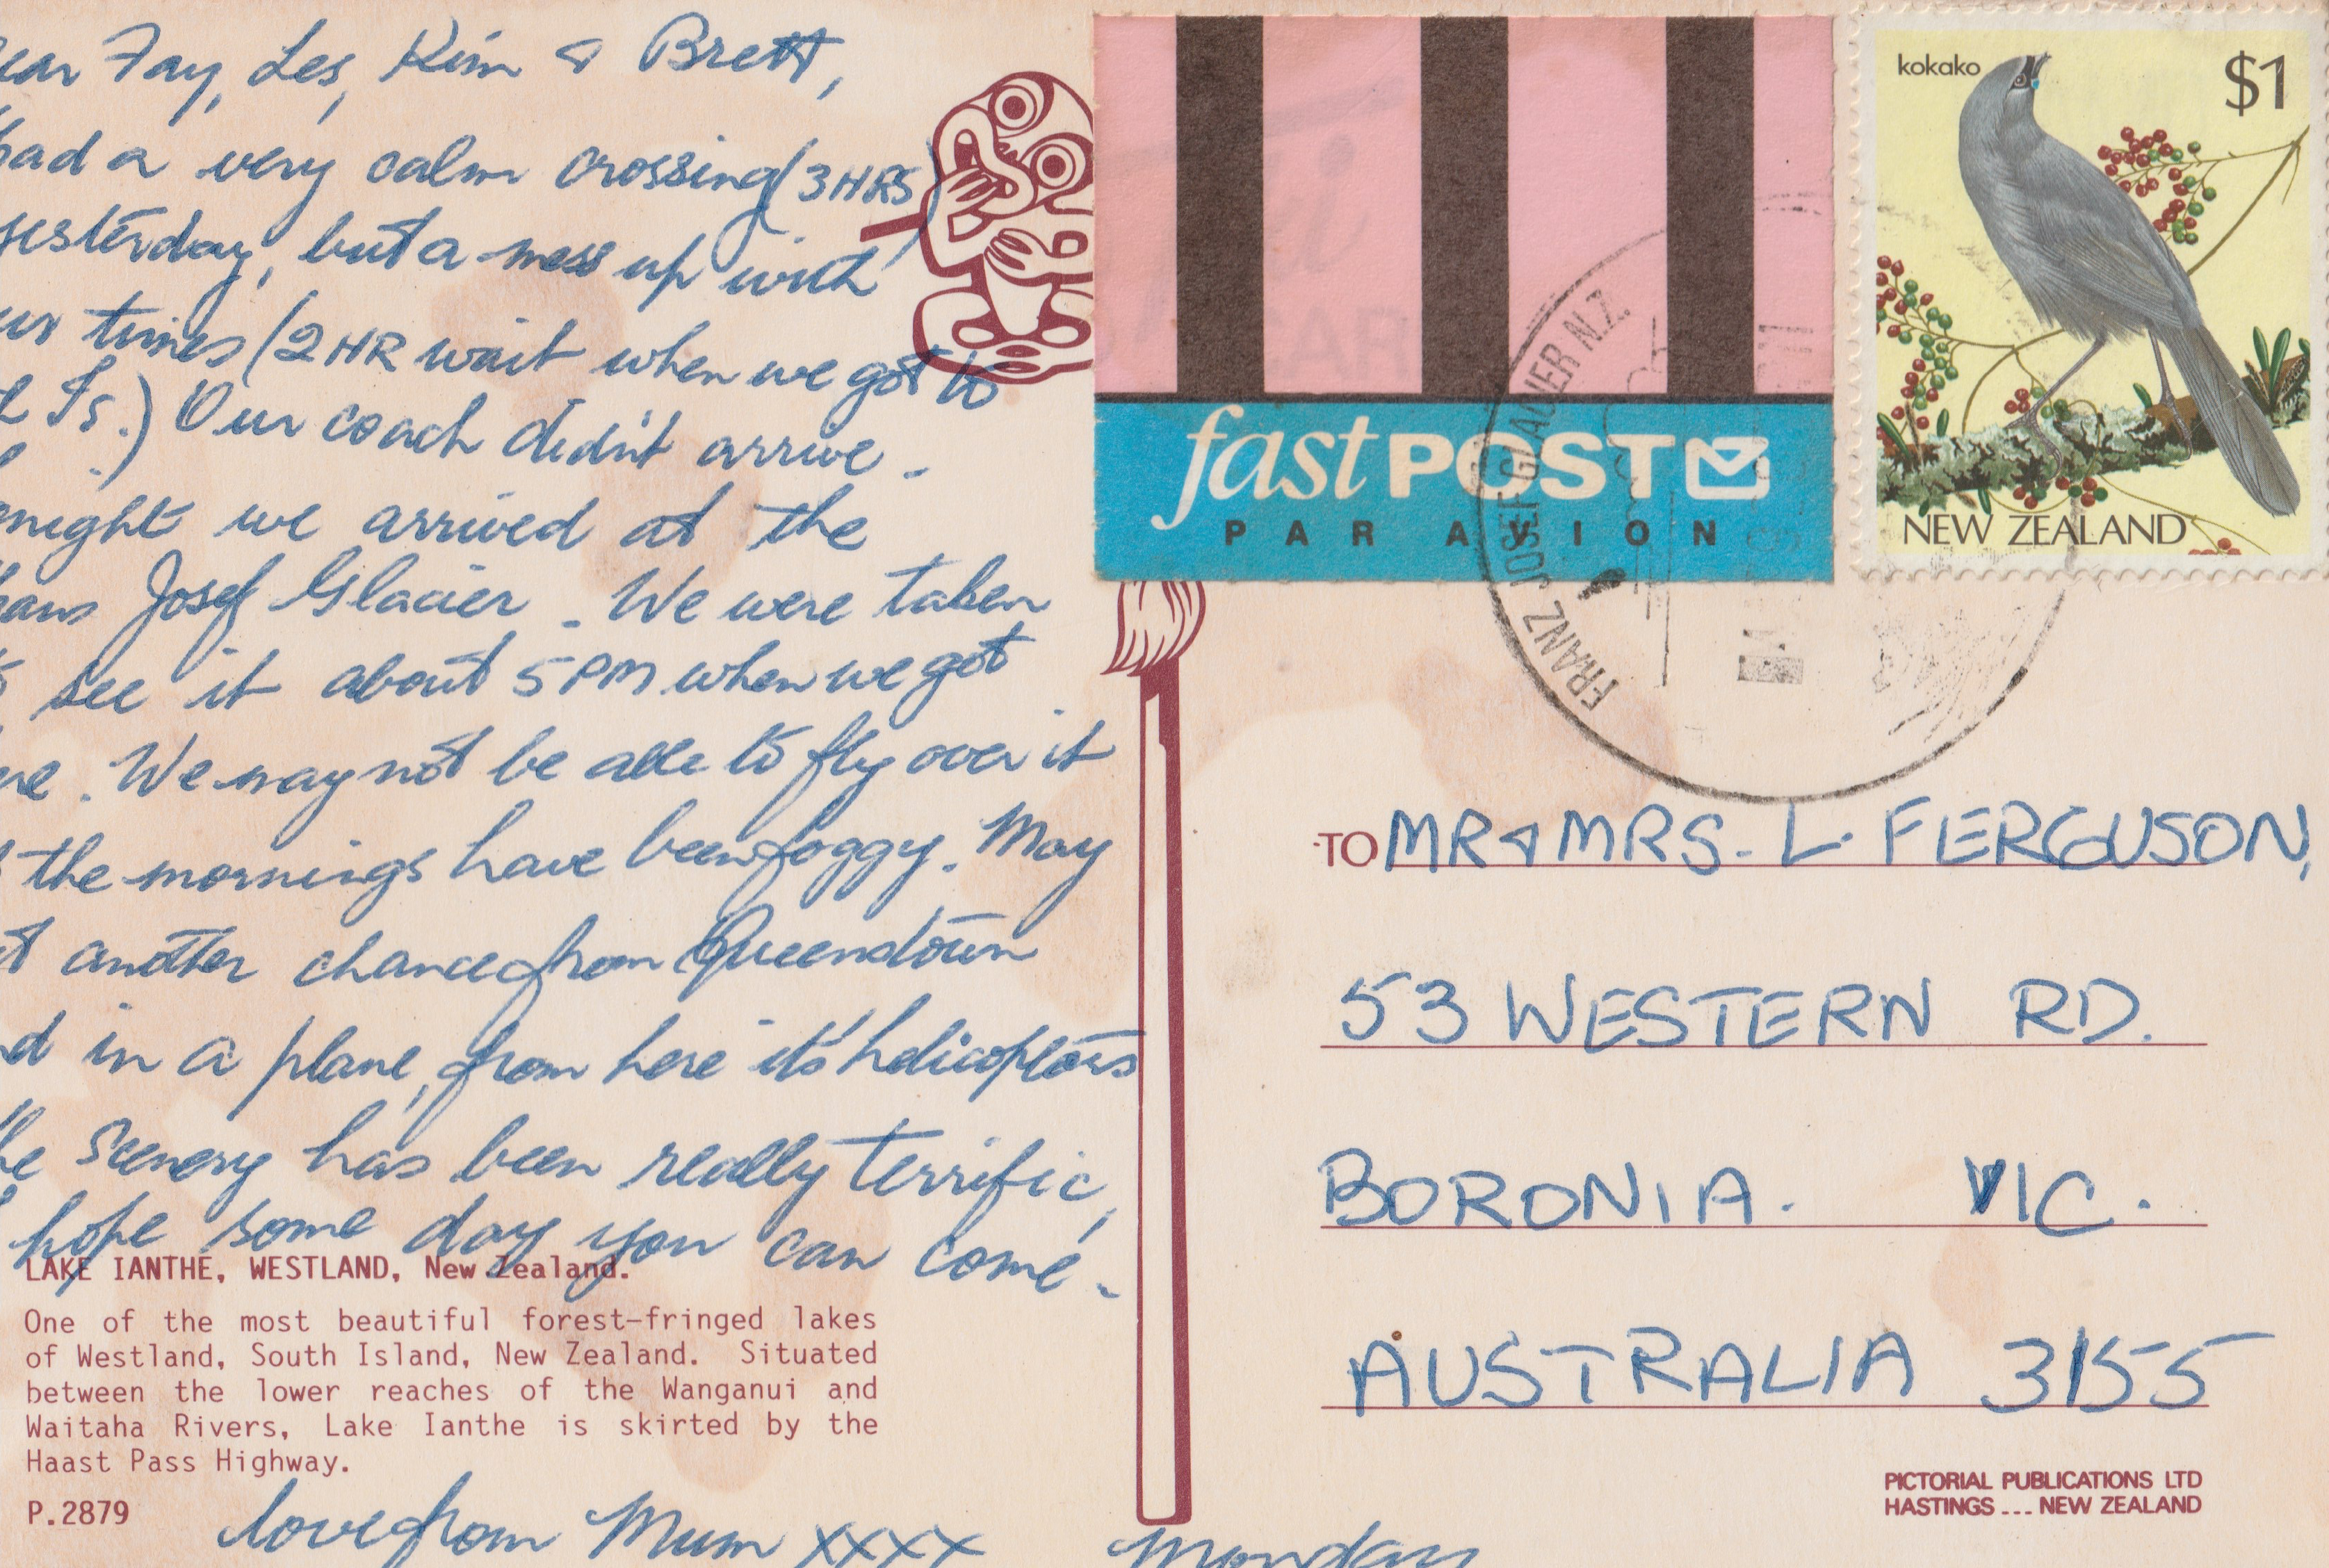 ear Fay, Les, Kim & Brett,
had a very calm crossing (3 HRS)
yesterday, but a mess up with
ur times (2 HR wait when we got to
Is.) Our coach didn't arrive.
night we arrived at the
Josef Glacier. We were taken
see it about 5 PM when we got
re. We may not be able to fly over it
the mornings have been foggy. May
another chance from Queenstown
d in a plane, from here it's helicopters
he scenery has been really terrific,
hope some day you can come.
LAKE IANTHE, WESTLAND, New Zealand.
One of the most beautiful forest-fringed lakes
of Westland, South Island, New Zealand. Situated
between the lower reaches of the Wanganui and
Waitaha Rivers, Lake Ianthe is skirted by the
Haast Pass Highway.
P.2879
love from Mum xxxx
Monday
fast POST
PAR AVION
kokako
$1
NEW ZEALAND
FRANZ JOSEF GLACIER N.Z.
TO MR & MRS. L. FERGUSON,
53 WESTERN RD.
BORONIA. VIC.
AUSTRALIA 3155
PICTORIAL PUBLICATIONS LTD
HASTINGS --- NEW ZEALAND